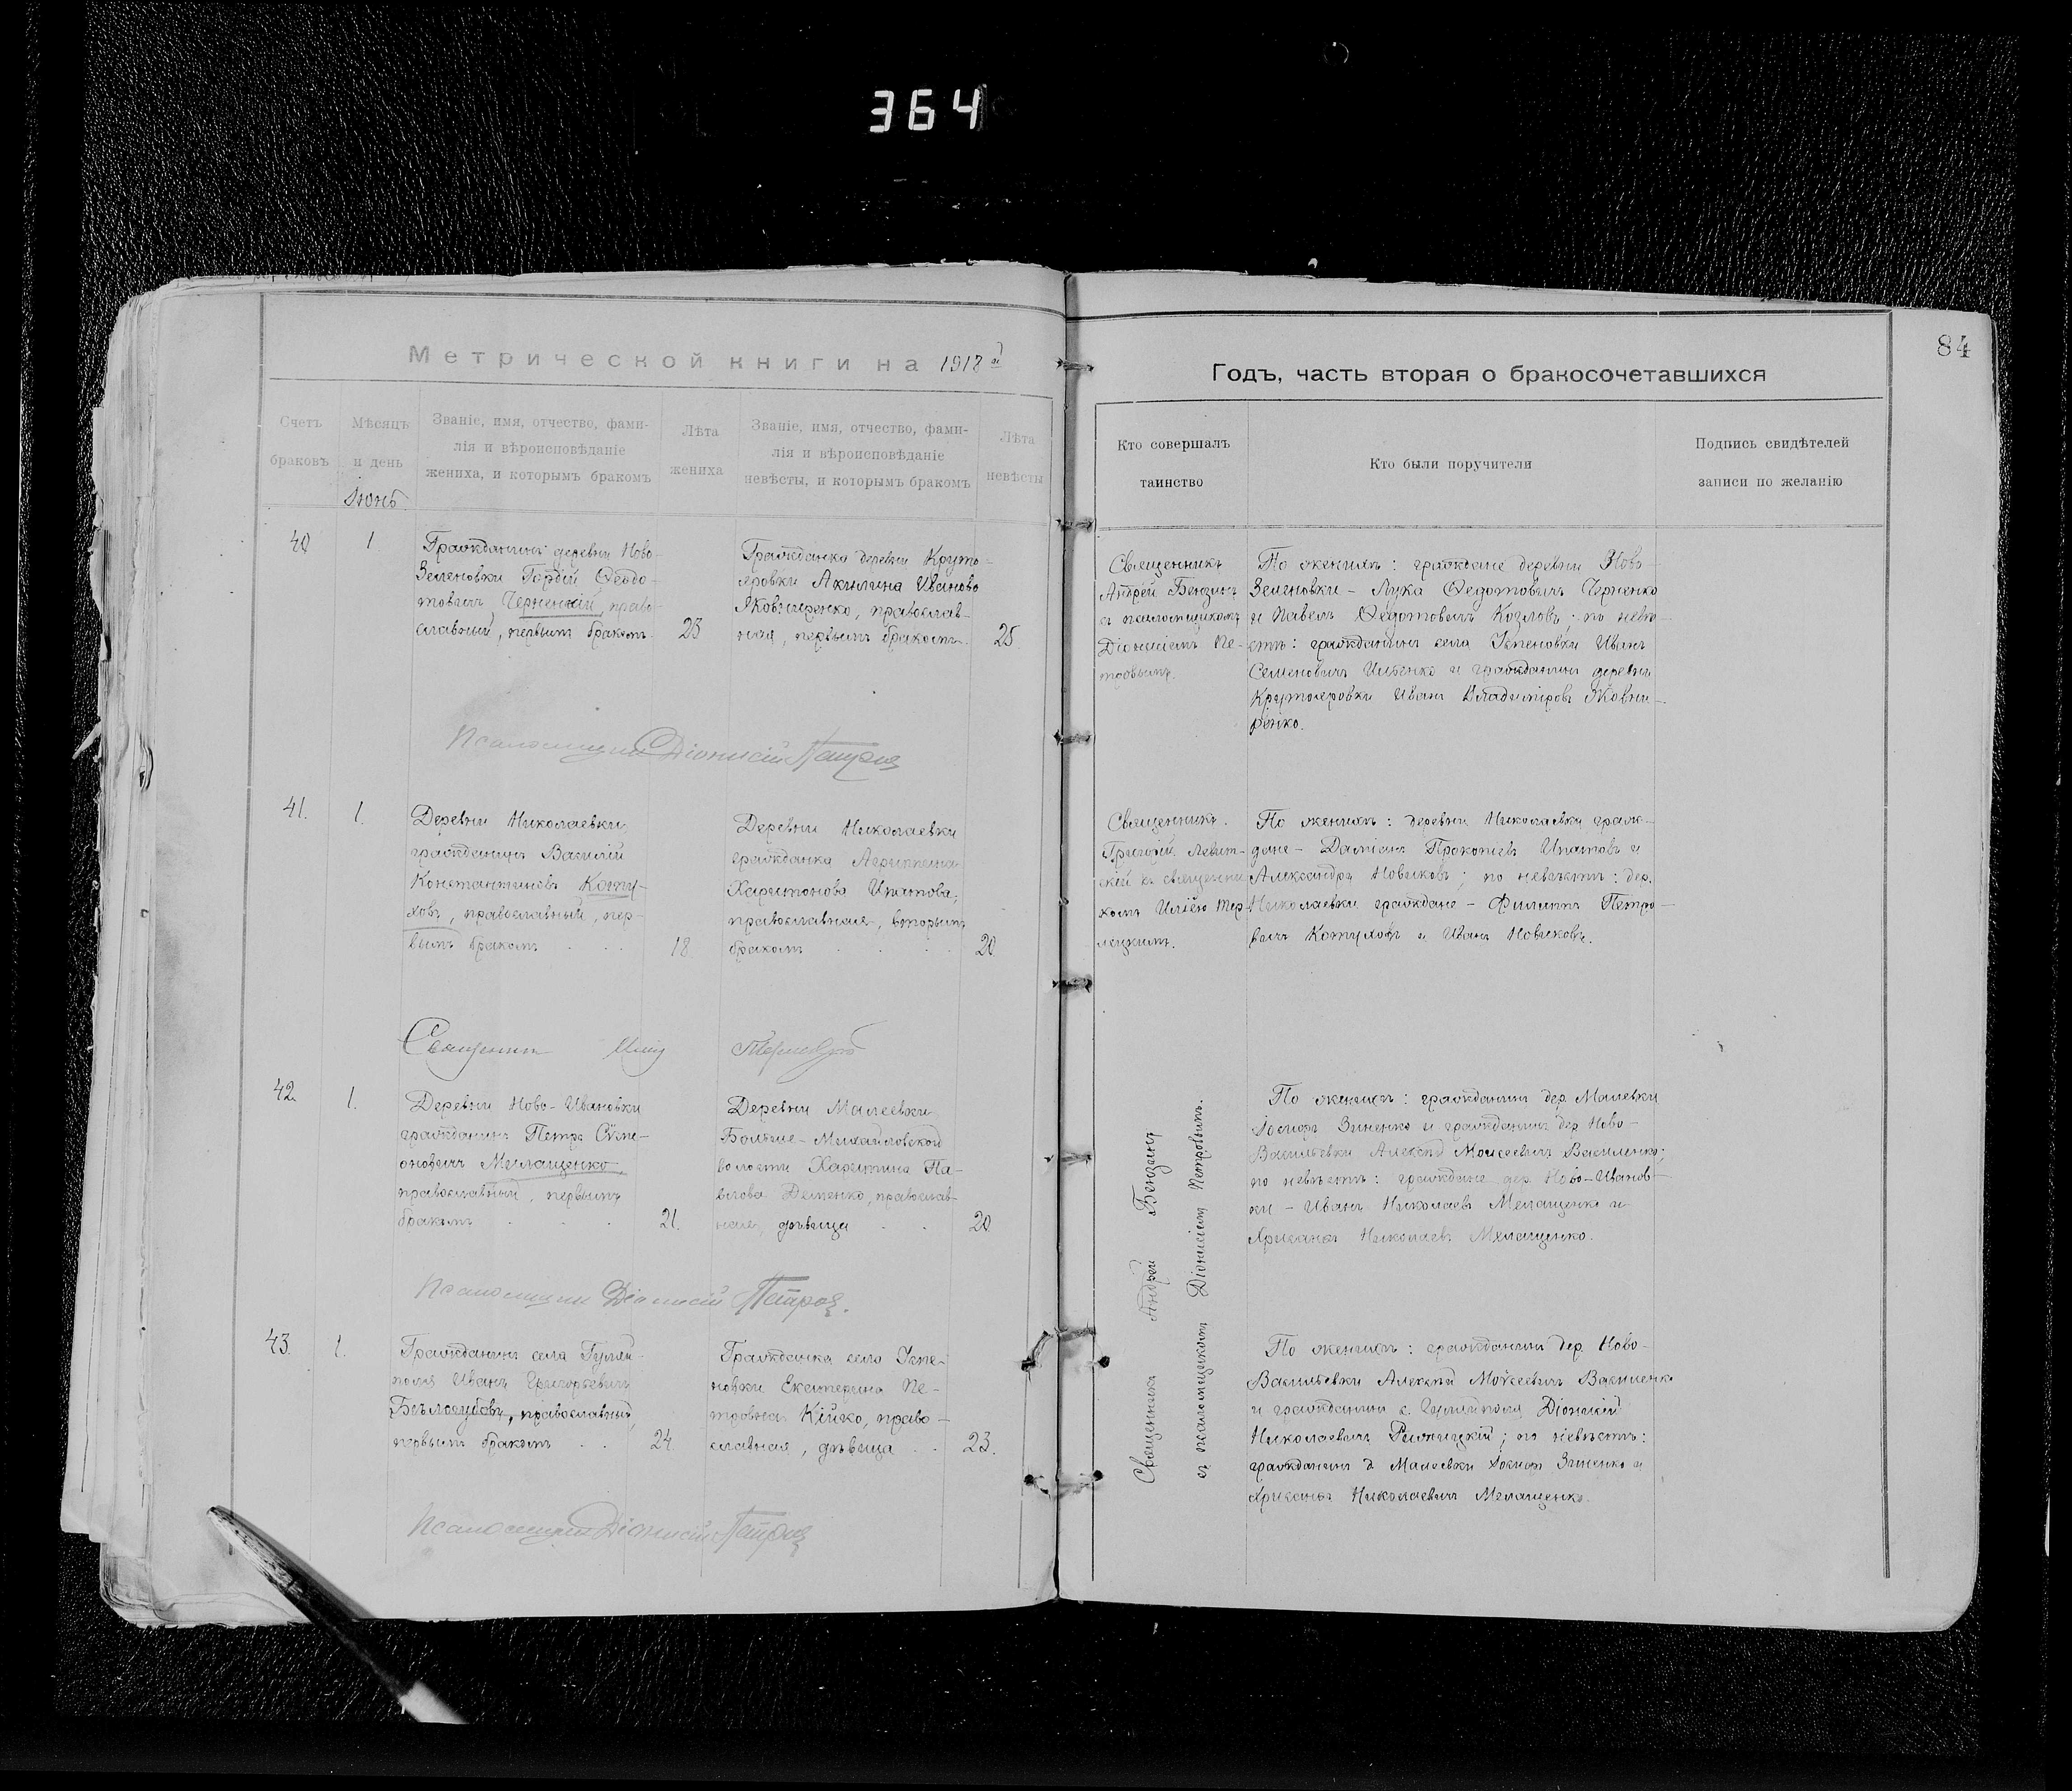 364
84
Метрической книги на 1918 й
Годъ, часть вторая о бракосочетавшихся
Счетъ
браковъ
Мѣсяцъ
и день
Іюнь
Званіе, имя, отчество, фами-
лія и вѣроисповѣданіе
жениха, и которымъ бракомъ
Лѣта
жениха
Званіе, имя, отчество, фами-
лія и вѣроисповѣданіе
невѣсты, и которымъ бракомъ
Лѣта
невѣсты
Кто совершалъ
таинство
Кто были поручители
Подпись свидѣтелей
записи по желанію
40
1
Гражданинъ деревни Ново-
Зеленовки Гордій Ѳеодо-
товичъ Черненкій, право-
славный, первымъ бракомъ
23
Гражданка деревни Круто-
яровки Акилина Иванова
Жовниренко, православ-
ная, первымъ бракомъ.
25
Священникъ
Андрей Бензинъ
съ псаломщикомъ
Діонисіемъ Пе-
тровымъ.
По женихѣ: граждане деревни Ново-
Зеленовки - Лука Ѳедотовичъ Черненко
и Павелъ Ѳедотовичъ Козловъ; по невѣ-
стѣ: гражданинъ села Успеновки Иванъ
Семеновичъ Ильенко и гражданинъ деревни
Крутояровки Иванъ Владиміровъ Жовни-
ренко.
Псаломщикъ Діонисій Петровъ
41.
1.
Деревни Николаевки
гражданинъ Василій
Константиновъ Коту-
ховъ, православный, пер-
вымъ бракомъ
18
Деревни Николаевки
гражданка Агриппина
Харитонова Ипатова,
православная, вторымъ
бракомъ
20
Священникъ
Григорій Левит-
скій съ священни
комъ Иліею Тер-
лецкимъ.
По женихѣ: деревни Николаевки граж-
дане - Даміанъ Прокопіевъ Ипатовъ и
Александръ Новиковъ; по невѣстѣ: дер.
Николаевки граждане - Филиппъ Петро-
вичъ Котуховъ и Иванъ Новиковъ.
Священникъ Илія
42.
1.
Деревни Ново-Ивановки
гражданинъ Петръ Сѵме-
оновичъ Мелащенко,
православный, первымъ
бракомъ
21.
Деревни Малеевки
Больше-Михайловской
волости Харитина Па-
влова Деменко, православ-
ная, дѣвица
20
Священникъ Андрей Бензинъ
съ псаломщикомъ Діонисіемъ Петровымъ.
По женихѣ: гражданинъ дер. Малеевки
Іосифъ Зиненко и гражданинъ дер. Ново-
Васильевки Алексѣй Моисеевичъ Василенко;
по невѣстѣ: граждане дер. Ново-Иванов-
ки - Иванъ Николаевъ Мелащенко и
Хрисанѳъ Николаевъ Мелащенко.
Псаломщикъ Діонисій Петровъ.
43.
1.
Гражданинъ села Гуляй-
поля Иванъ Григорьевичъ
Бѣлогубовъ, православный,
первымъ бракомъ
24.
Гражданка села Успе-
новки Екатерина Пе-
тровна Кійко, право-
славная, дѣвица
23.
По женихѣ: гражданинъ дер. Ново-
Васильевки Алексѣй Моѵсеевичъ Василенко
и гражданинъ с. Гуляйполя Діонисій
Николаевичъ; по невѣстѣ:
гражданинъ д. Малеевки Іосифъ Зиненко и
Хрисанѳъ Николаевичъ Мелащенко.
Псаломщикъ Діонисій Петровъ